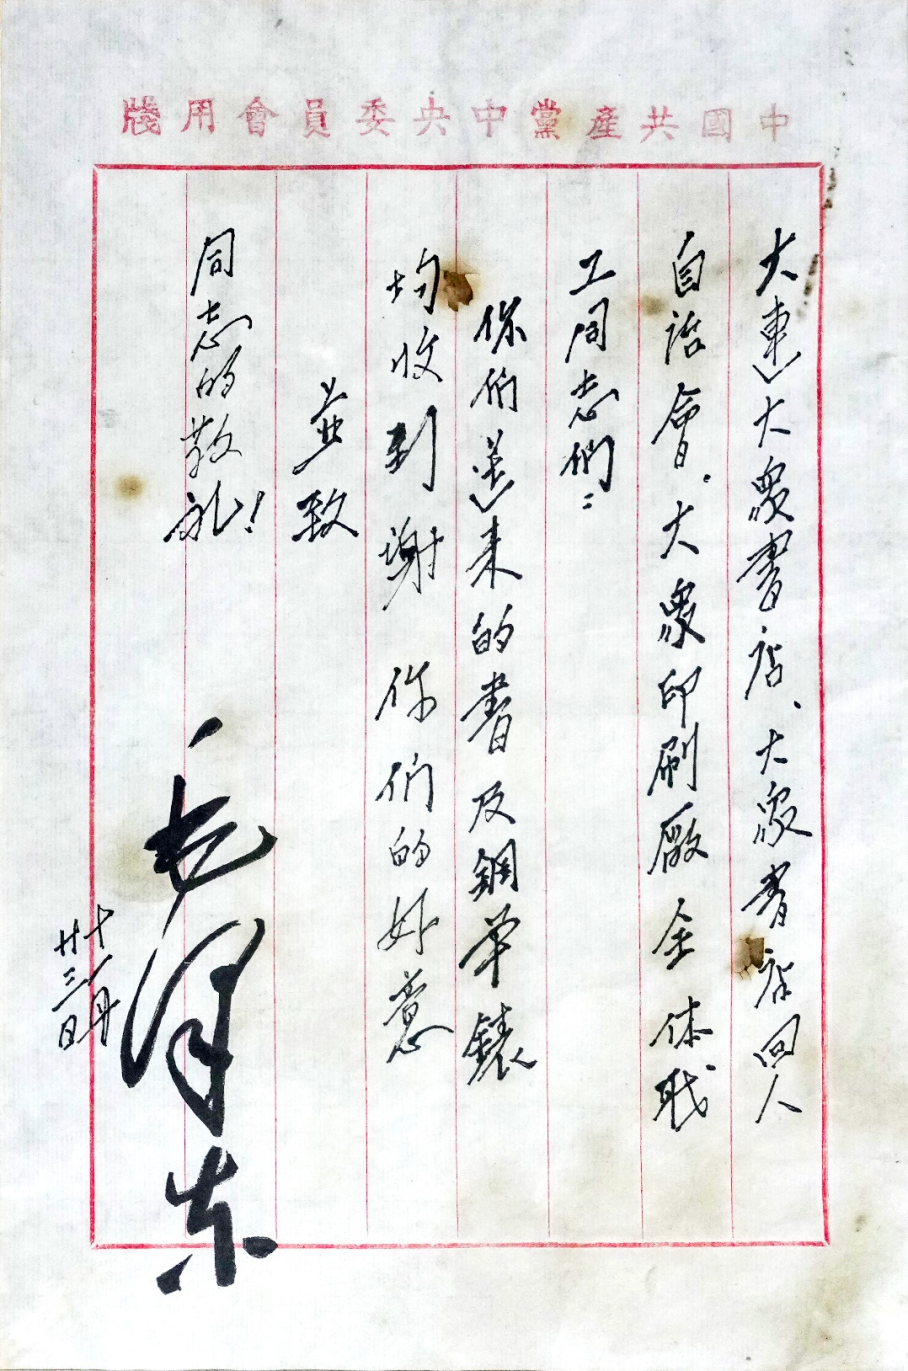 中國共產黨中央委員會用牋
大連大眾書店、大眾書店同人
自治會、大眾印刷廠全体职
工同志們：
你们送来的書及鋼笔錶
均收到谢你们的好意
並致
同志的敬礼！
毛泽东
十一月
廿三日